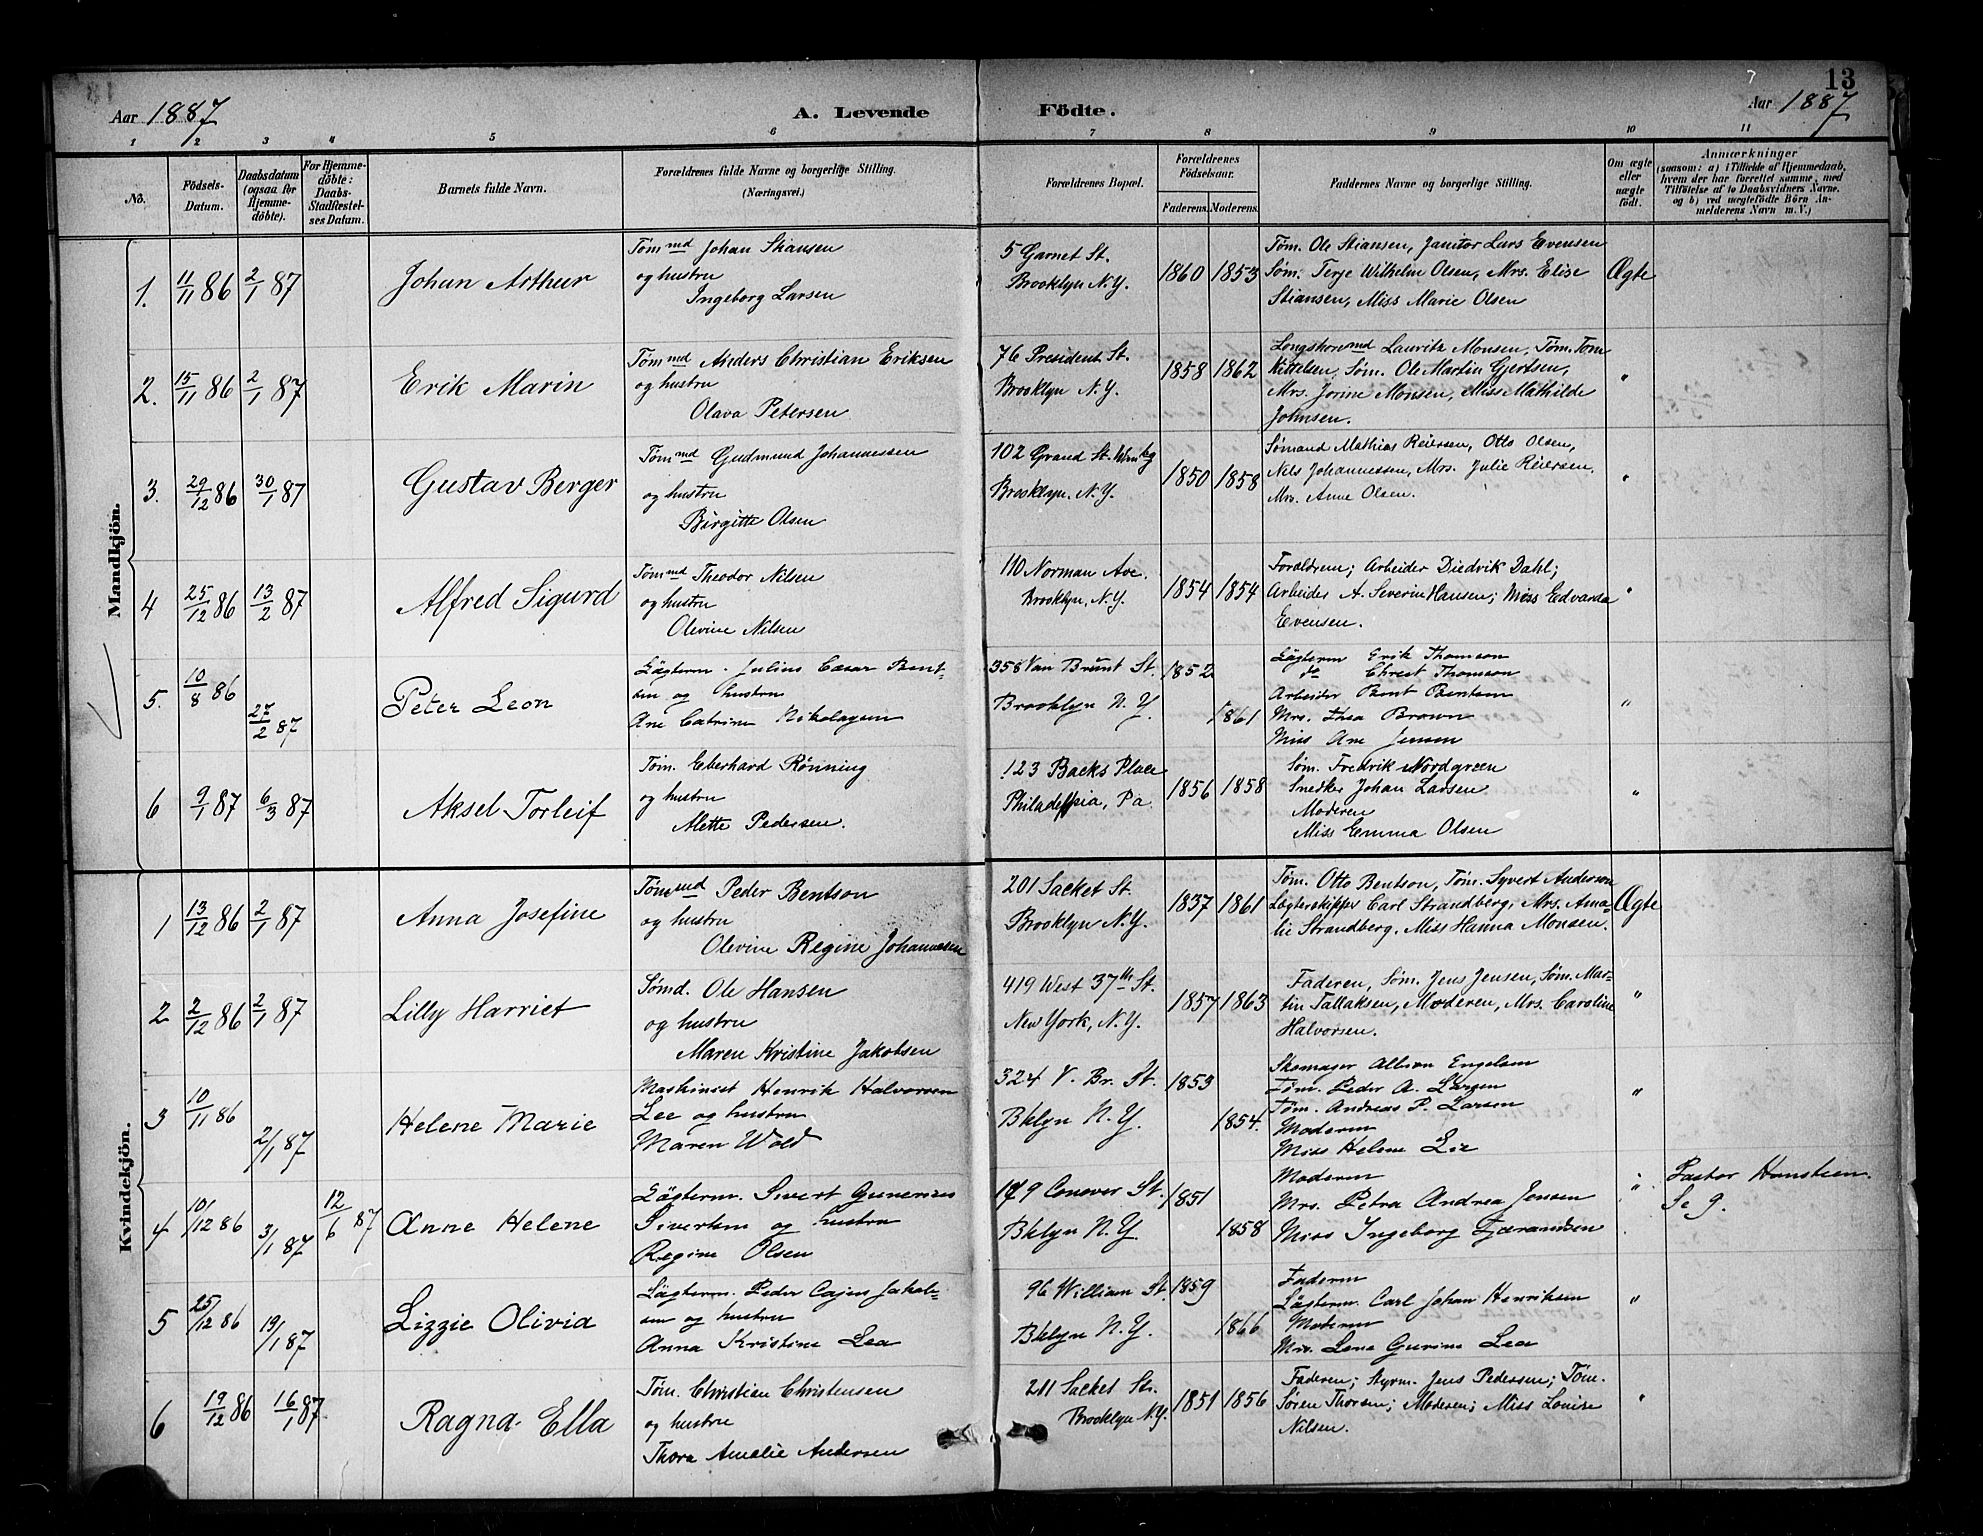 13
Aar 1887
A. Levende
Födte.
Aar 1887
1 2 3 4 5 6 7 8 9 10 11
No.
Födsels-
Datum.
Daabsdatum
(ogsaa for
Hjemme-
döbte).
For Hjemme-
döbte:
Daabs-
Stadfæstel-
ses Datum.
Barnets fulde Navn.
Forældrenes fulde Navne og borgerlige Stilling.
(Næringsvei.)
Forældrenes Bopæl.
Forældrenes
Födselsaar.
Faderens. Moderens.
Faddernes Navne og borgerlige Stilling.
Om ægte
eller
uægte
födt.
Anmærkninger
(saasom: a) i Tilfælde af Hjemmedaab,
hvem der har forrettet samme, med
Tilföielse af to Daabsvidners Navne,
og b) ved uægtefödte Börn An-
melderens Navn m. V.)
Mandkjön.
1. 11/11 86 2/1 87
Johan Arthur
Tømmd Johan Stiansen
og hustru
Ingeborg Larsen
5 Garnet St.
Brooklyn N.Y.
1860 1853
Tøm. Ole Stiansen, Janitor Lars Evensen
Søm. Terje Wilhelm Olsen, Mrs. Elise
Stiansen, Miss Marie Olsen
Ægte
2. 15/11 86 2/1 87
Erik Marin
Tømmd Anders Christian Eriksen
og hustru
Olava Petersen
76 President St.
Brooklyn N.Y.
1858 1862
Longshoremd Lauritz Monsen, Tøm. Tom
Kittelsen, Søm. Ole Martin Gjertsen,
Mrs. Jorine Monsen, Miss Mathilde
Johnsen.
"
3. 29/12 86 30/1 87
Gustav Berger
Tømmd Gudmund Johannessen
og hustru
Birgitte Olsen
102 Grand St. Wmbg
Brooklyn. N.Y.
1850 1858
Sømand Mathias Reiersen, Otto Olsen,
Nils Johannessen, Mrs. Julie Reiersen,
Mrs. Anne Olsen.
"
4 25/12 86 13/2 87
Alfred Sigurd
Tømmd Theodor Nilsen
og hustru
Olevine Nilsen
110 Norman Ave.
Brooklyn, N.Y.
1854 1854
Forældrene; Arbeider Diedrik Dahl;
Arbeider A. Severin Hansen; Miss Edvarda
Evensen.
"
5. 10/8 86 27/2 87
Peter Leon
Lägterm. Julius Cæsar Bent-
sen og hustru
Ane Catrine Nikolaysen
358 Van Brunt St.
Brooklyn N.Y.
1852 1861
Lägterm Erik Thomson
do Christ Thomson
Arbeider Bent Bentsen
Mrs. Thea Brown
Miss Ane Jensen
"
6 9/1 87 6/3 87
Aksel Torleif
Tøm. Eberhard Rönning
og hustru
Alette Pedersen.
123 Backs Place
Philadelphia, Pa
1856 1858
Søm. Fredrik Nordgreen
Snedker Johan Larsen
Moderen
Miss Emma Olsen
"
Kvindekjön.
1 13/12 86 2/1 87
Anna Josefine
Tømmd Peder Bentson
og hustru
Olevine Regine Johannesen
201 Sacket St.
Brooklyn N.Y.
1837 1861
Tøm. Otto Bentson, Tøm. Syvert Anderson
Lægterskipper Carl Strandberg, Mrs. Ama-
lie Strandberg, Miss Hanna Monsen.
Ægte
2 2/12 86 2/1 87
Lilly Harriet
Sømd. Ole Hansen
og hustru
Maren Kristine Jakobsen
419 West 37th St.
New York, N.Y.
1857 1863
Faderen, Søm. Jens Jensen, Søm. Mar-
tin Tallaksen, Moderen, Mrs. Caroline
Halvorsen.
"
3 10/11 86 2/1 87
Helene Marie
Maskinist Henrik Halvorsen
Lee og hustru
Maren Wold
324 V. Br. St.
Bklyn N.Y.
1853 1854.
Skomager Engelsen
Tøm. Peder A.
Tøm. Andreas P. Larsen
Moderen
Miss Helene Lie
"
4 10/12 86 3/1 87 12/6 87
Anne Helene
Lägterm. Sivert
Sivertsen og hustru
Regine Olsen
179 Conover St.
Bklyn N.Y.
1851 1858
Moderen
Mrs. Petra Andrea Jensen
Miss Ingeborg Tjærandsen
"
Pastor Hansteen.
Se 9.
5 25/12 86 19/1 87
Lizzie Olivia
Lägterm. Peder Cajus Jakob-
sen og hustru
Anna Kristine Lea
96 William St.
Bklyn N.Y.
1859 1866
Faderen
Lägterm. Carl Johan Henriksen
Moderen
Mrs. Lena Gurine Lea
"
6 19/12 86 16/1 87
Ragna Ella
Tøm. Christian Christensen
og hustru
Thora Amalie Andersen
211 Sacket St.
Brooklyn N.Y.
1851 1856
Faderen; Styrm. Jens Pedersen; Tøm.
Sören Thorsen; Moderen; Miss Louise
Nilsen.
"